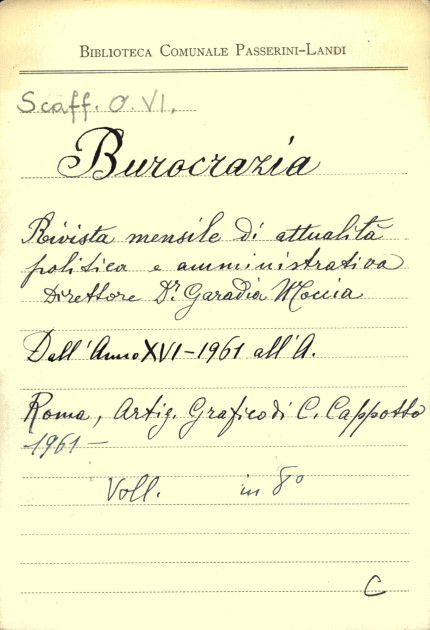 BIBLIOTECA COMUNALE PASSERINI-LANDI
Scaff. O. VI.
Burocrazia
Rivista mensile di attualità
politica e amministrativa
Direttore Dr. Garadia Moccia
Dall'Anno XVI - 1961 all'A.
Roma, Artig. Grafico di C. Cappotto
1961 -
Voll. in 8°
C